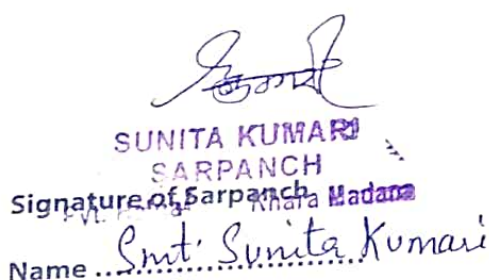 SUNITA KUMARI
SARPANCH
Signature of Sarpanch Khara Madana
Name .... Smt. Sunita Kumari